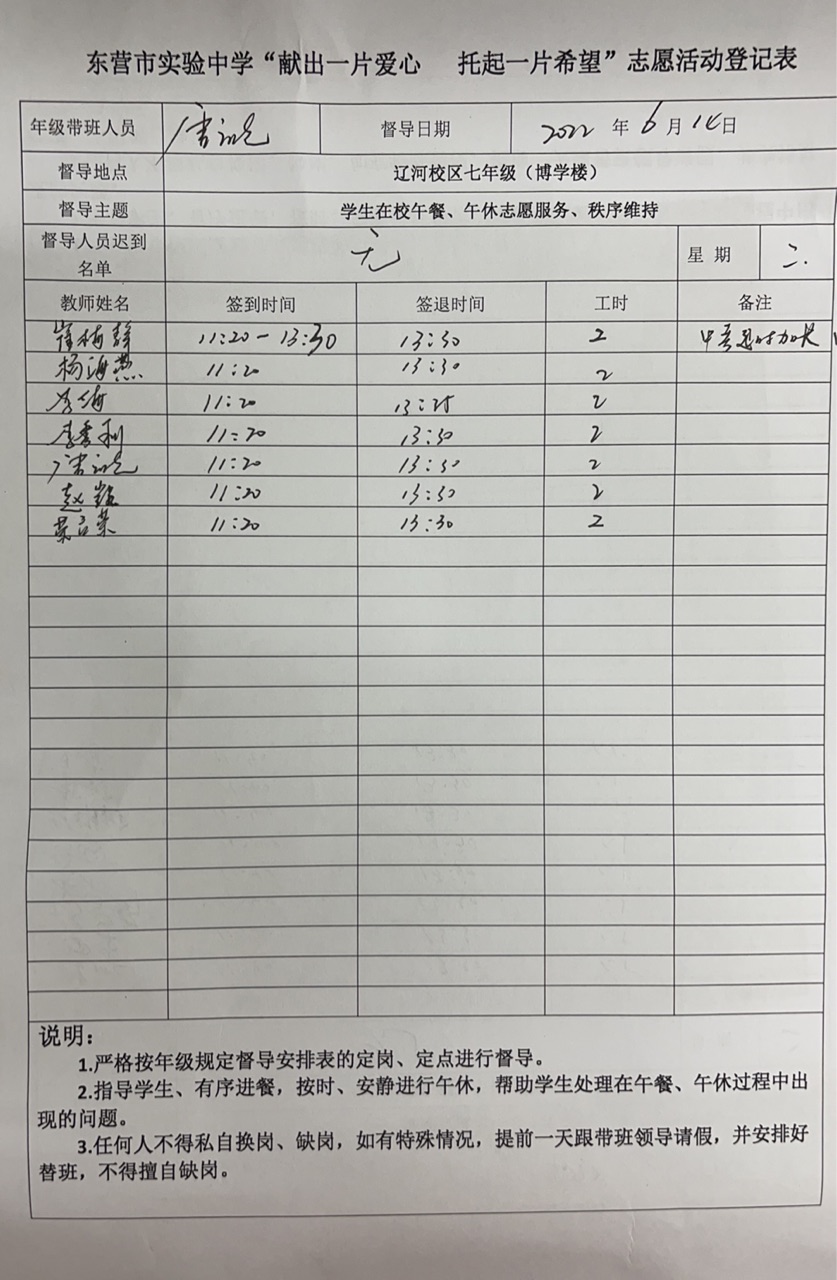 东营市实验中学“献出一片爱心 托起一片希望”志愿活动登记表
年级带班人员 督导日期 2022 年 6 月 14 日
督导地点 辽河校区七年级（博学楼）
督导主题 学生在校午餐、午休志愿服务、秩序维持
督导人员迟到名单 无 星 期 二
教师姓名 签到时间 签退时间 工时 备注
崔梅静 11:20-13:30 13:30 2
杨海燕 11:20 13:30 2
李梅 11:20 13:25 2
李秀利 11:20 13:30 2
11:20 13:30 2
赵 11:20 13:30 2
11:20 13:30 2
说明：
1.严格按年级规定督导安排表的定岗、定点进行督导。
2.指导学生、有序进餐，按时、安静进行午休，帮助学生处理在午餐、午休过程中出
现的问题。
3.任何人不得私自换岗、缺岗，如有特殊情况，提前一天跟带班领导请假，并安排好
替班，不得擅自缺岗。